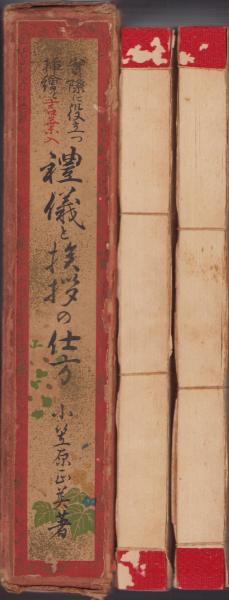 實際に役立つ
挿繪と言葉入
禮儀と挨拶の仕方
小笠原正英著